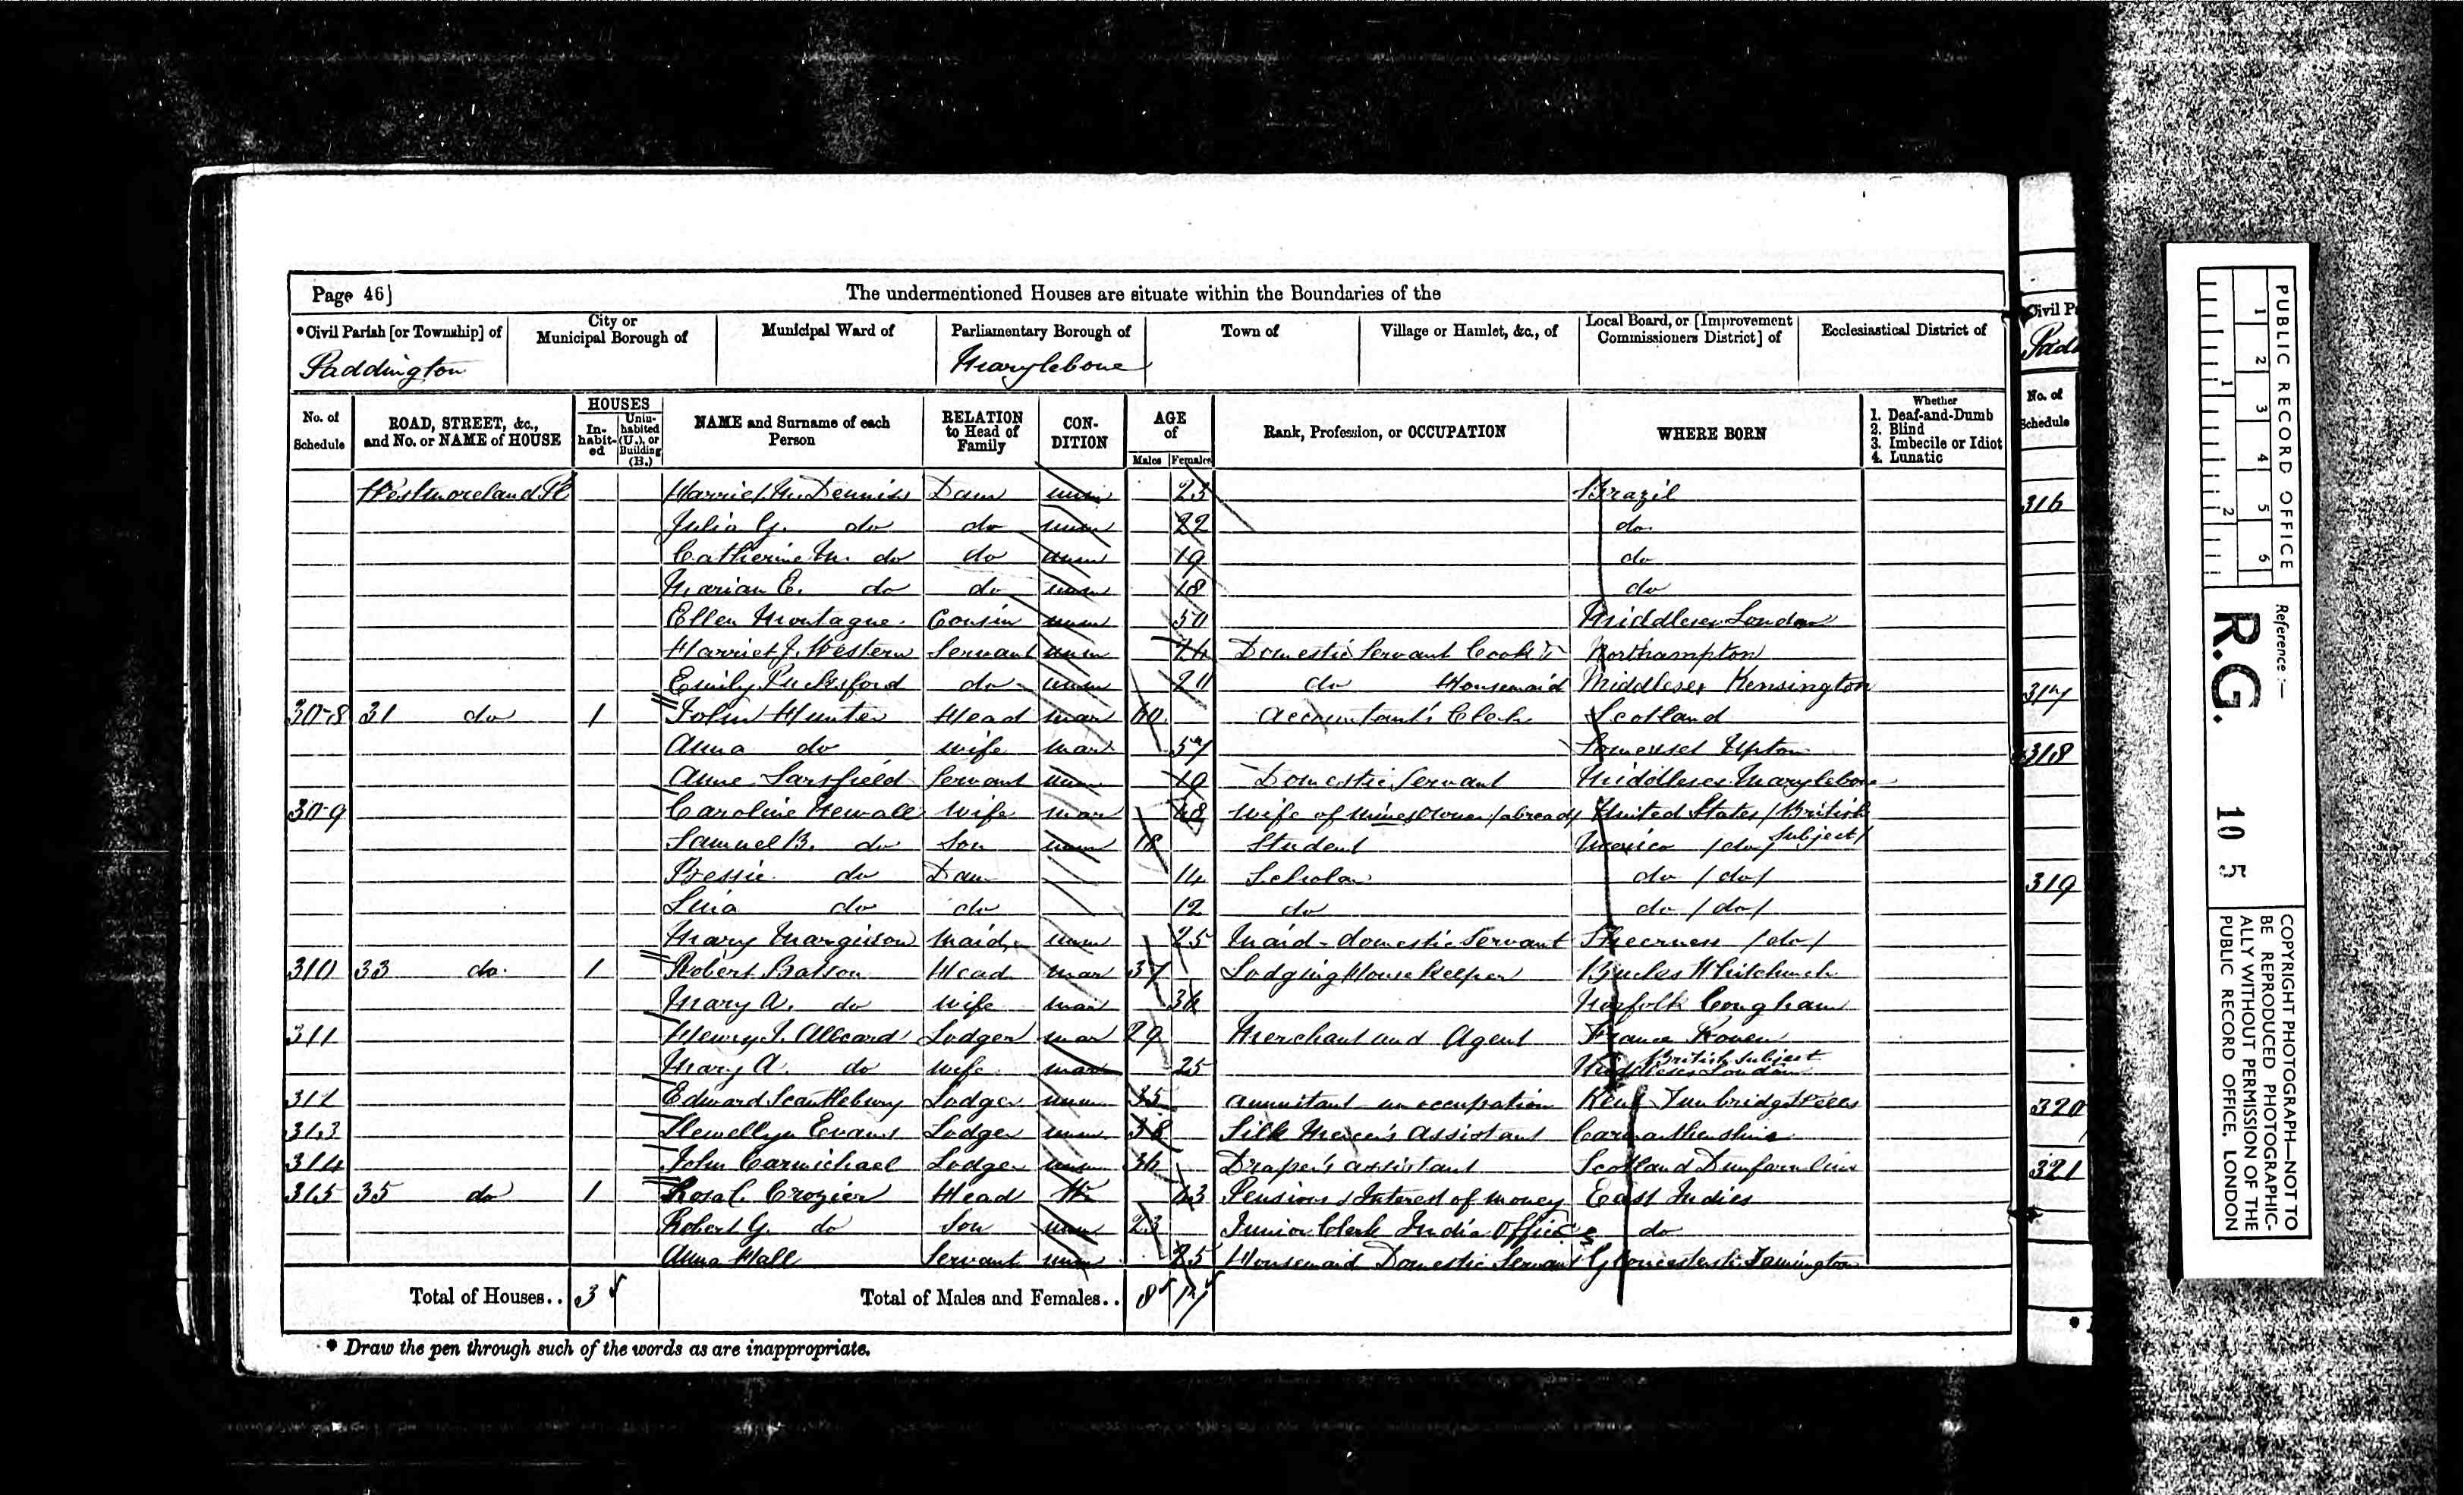 Page 46]
The undermentioned Houses are situate within the Boundaries of the
*Civil Parish [or Township] of
City or Municipal Borough of
Municipal Ward of
Parliamentary Borough of
Town of
Village or Hamlet, &c., of
Local Board, or [Improvement Commissioners District] of
Ecclesiastical District of
Paddington Marylebone
No. of Schedule
ROAD, STREET, &c., and No. or NAME of HOUSE
HOUSES
In-habit-ed
Unin-habited (U.), or Building (B.)
NAME and Surname of each Person
RELATION to Head of Family
CON-DITION
AGE of
Males Females
Rank, Profession, or OCCUPATION
WHERE BORN
Whether
1. Deaf-and-Dumb
2. Blind
3. Imbecile or Idiot
4. Lunatic
Westmoreland Pl Harriet M. Dennis Daur unm 23 Brazil
Julia G. do do unm 22 do
Catherine M. do do unm 19 do
Marian E. do do unm 18 do
Ellen Montague Cousin unm 50 Middlesex London
Harriet J. Western Servant unm 24 Domestic Servant Cook Northampton
Emily Puckford do unm 20 do Housemaid Middlesex Kensington
308 31 do 1 John Hunter Head mar 60 Accountant's Clerk Scotland
Anna do wife mar 57 Somerset Upton
Anne Sarsfield Servant unm 19 Domestic Servant Middlesex Marylebone
309 Caroline Newall Wife mar 48 Wife of Mines Owner /abroad/ United States /British Subject/
Samuel B. do Son unm 18 Student Mexico /do/
Bessie do Daur 14 Scholar do /do/
Lina do do 12 do do /do/
Mary Margison Maid unm 25 Maid-domestic Servant Sheerness /do/
310 33 do 1 Robert Batson Head mar 37 Lodging House Keeper Bucks Whitchurch
Mary A. do wife mar 34 Norfolk Congham
311 Henry J. Allcard Lodger mar 29 Merchant and Agent France Rouen
British Subject
Mary A. do wife mar 25 Middlesex London
312 Edward Scantlebury Lodger unm 35 annuitant no occupation Kent Tunbridge Wells
313 Llewellyn Evans Lodger unm 38 Silk Mercer's Assistant Carmarthenshire
314 John Carmichael Lodger unm 36 Draper's assistant Scotland Dunfermline
315 35 do 1 Rosa C. Crozier Head W 43 Pension & Interest of money East Indies
Robert G. do Son unm 23 Junior Clerk India Office do
Anna Hall Servant unm 25 Housemaid Domestic Servant
Total of Houses.. 3 Total of Males and Females.. 8 17
* Draw the pen through such of the words as are inappropriate.
Civil P
Padd
No. of
Schedule
316
317
318
319
320
321
PUBLIC RECORD OFFICE
1 2 3 4 5 6
1 2
Reference:—
R.G. 10 5
COPYRIGHT PHOTOGRAPH—NOT TO
BE REPRODUCED PHOTOGRAPHIC-
ALLY WITHOUT PERMISSION OF THE
PUBLIC RECORD OFFICE, LONDON